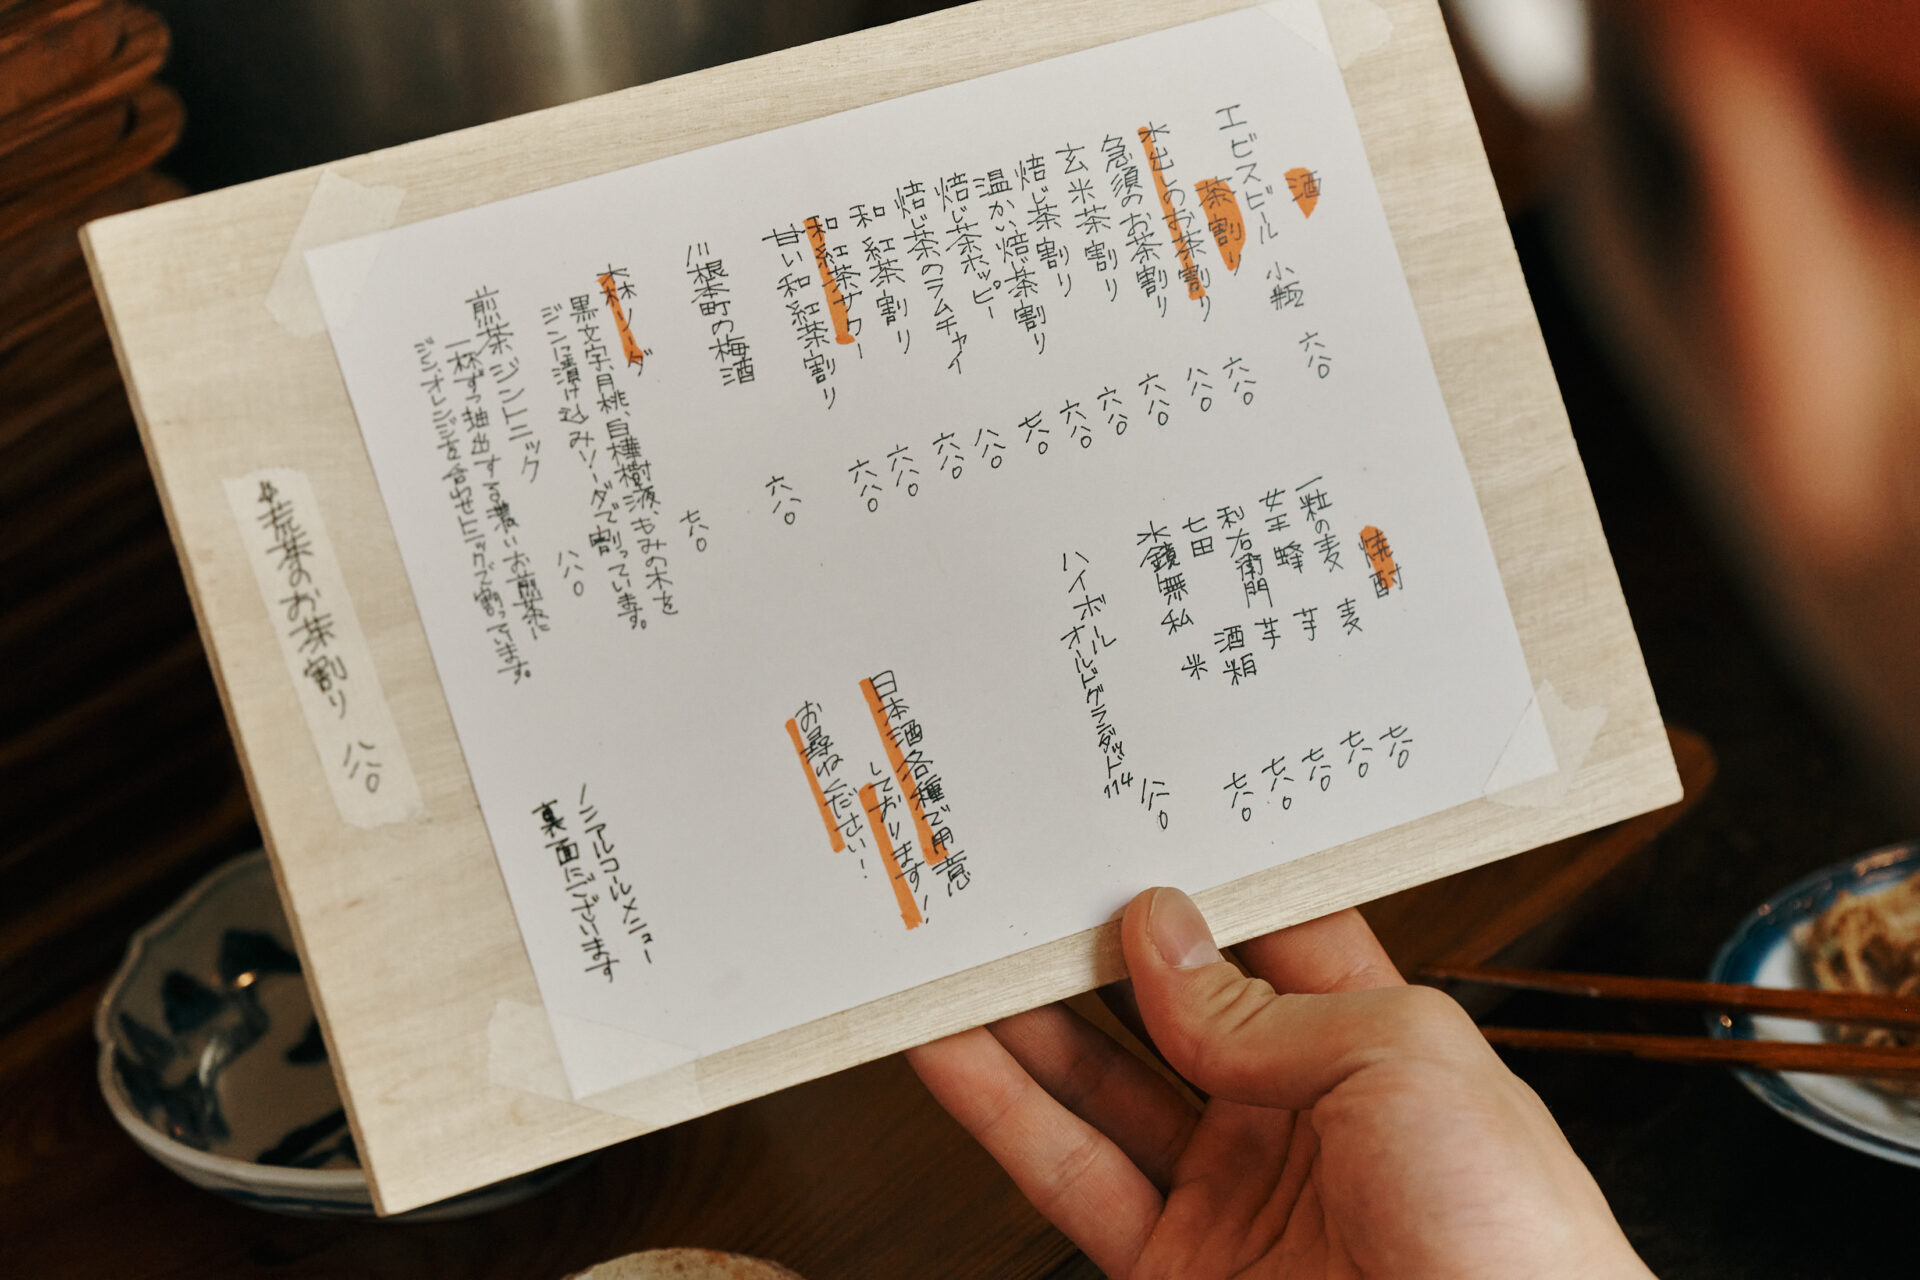 酒
エビスビール 小瓶 六八〇
茶割り
水出しのお茶割り 六八〇
急須のお茶割り 八八〇
玄米茶割り 六八〇
焙じ茶割り 六八〇
温かい焙じ茶割り 六八〇
焙じ茶ホッピー 七八〇
焙じ茶のラムチャイ 八八〇
和紅茶割り 六八〇
和紅茶サワー 六八〇
甘い和紅茶割り 六八〇
川根本町の梅酒 六八〇
森ソーダ 七八〇
黒文字、月桃、白樺樹液、もみの木を
ジンに漬け込みソーダで割っています。
煎茶ジントニック 八八〇
一杯ずつ抽出する濃いお煎茶に
ジン、オレンジを合わせトニックで割っています。
焼酎
一粒の麦 麦 七八〇
女王蜂 芋 七八〇
利右衛門 芋 七八〇
七田 酒粕 七八〇
水鏡無私 米 七八〇
ハイボール
オールドグランダッド114 八八〇
日本酒各種ご用意
しております!
お尋ねください!
ノンアルコールメニュー
裏面にございます
荒茶のお茶割り 八八〇